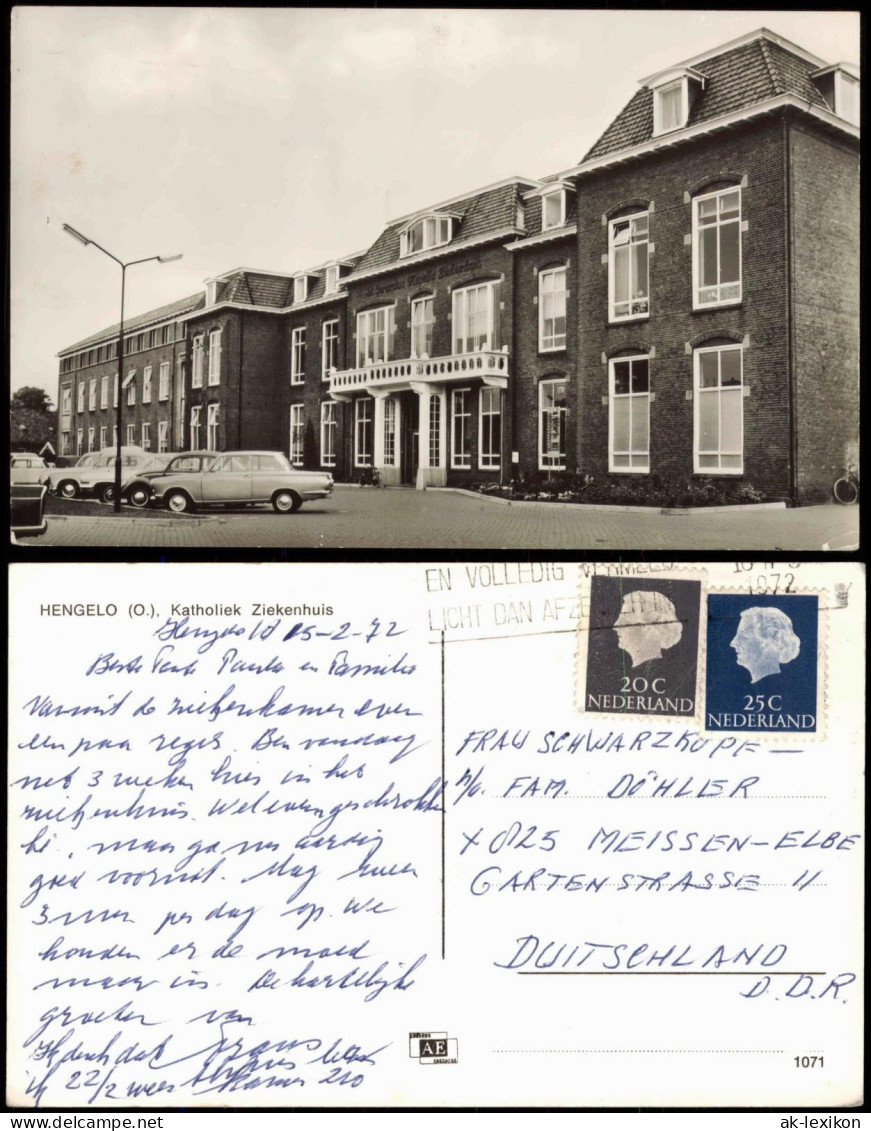 St. Gerardus Majella Ziekenhuis
HENGELO (O.), Katholiek Ziekenhuis
Hengelo 15-2-72
Beste Tante Paula en Familie
Vanuit de ziekenkamer even
een paar regels. Ben vandaag
net 3 weken hier in het
ziekenhuis. Wel even geschrokken
hè, maar ga nu aardig
goed vooruit. Mag weer
3 uur per dag op. We
houden er de moed
maar in. De hartelijke
groeten van
Ik denk dat Frans
ik 22/2 weer kamer 210
EN VOLLEDIG
LICHT DAN
1972
20 C
NEDERLAND
25 C
NEDERLAND
FRAU SCHWARZKOPF
p/a. FAM. DÖHLER
X 8125 MEISSEN-ELBE
GARTENSTRASSE 11
DUITSCHLAND
D.D.R.
AE
1071
ak-lexikon.com